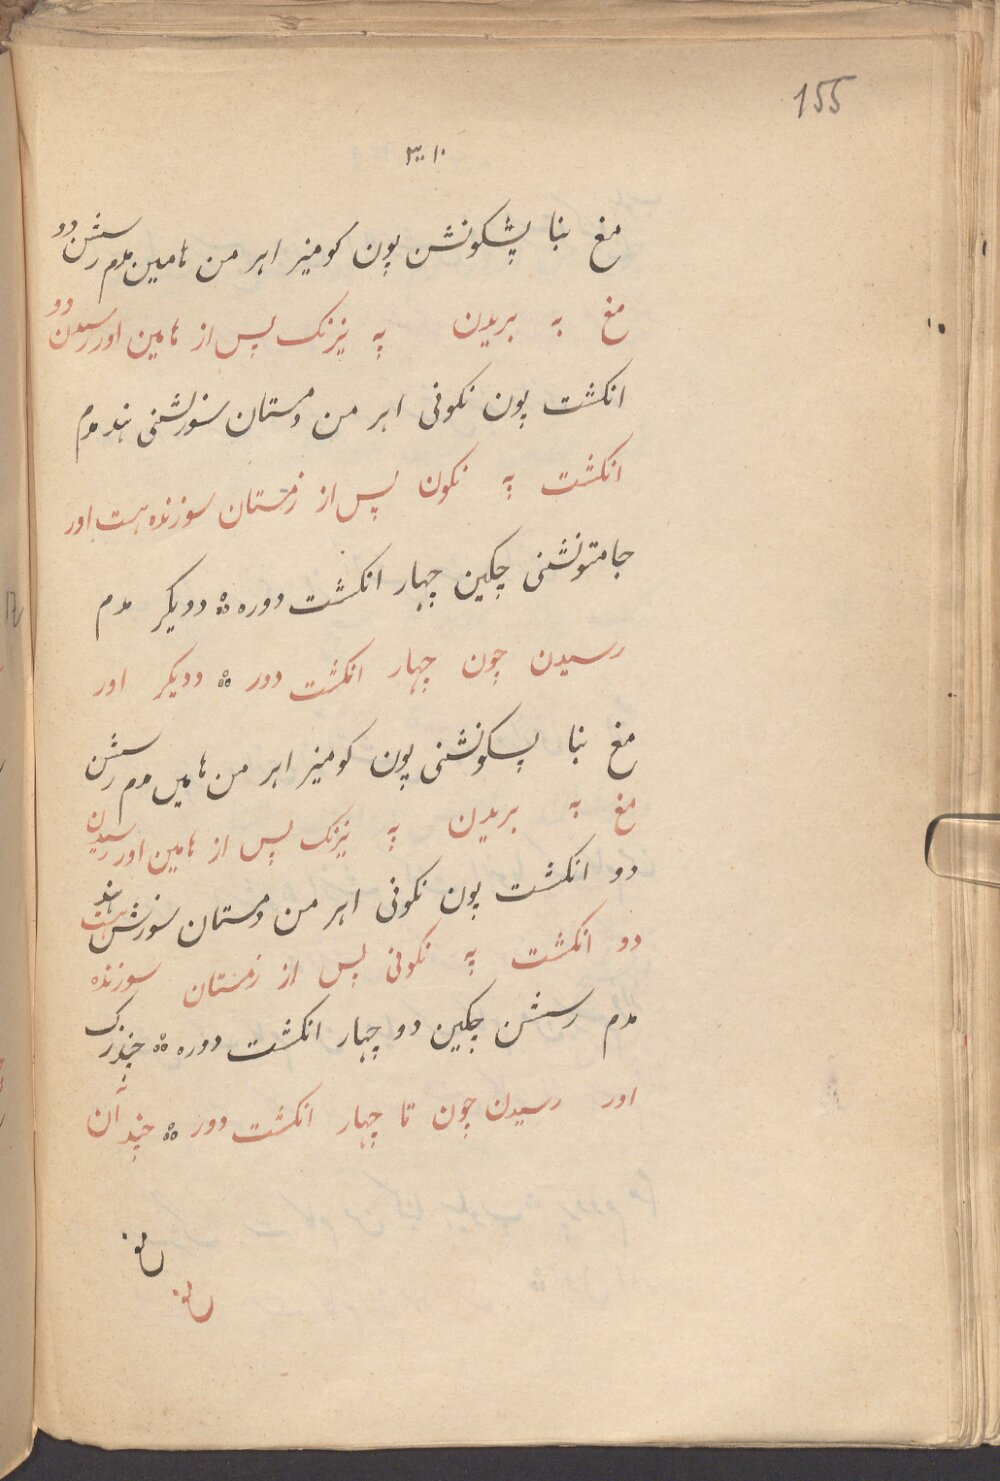 155
۳۱۰
مغ بنا پشکونشن پون کومیز اهر من هامین مدم رسشن دو
مغ به بریدن په نیرنک پس از هامین اور رسیدن دو
انکشت پون نکونی اهر من دمستان سوزشنی هند مدم
انکشت په نکون پس از زمستان سوزنده هست اور
جامتونشنی چکین چهار انکشت دوره ؞ ددیکر مدم
رسیدن چون چهار انکشت دور ؞ ددیکر اور
مغ بنا پسکونشنی پون کومیز اهر من هامین مدم رسشن
مغ به بریدن په نیرنک پس از هامین اور رسیدن
دو انکشت پون نکونی اهر من دمستان سوزشن هند
دو انکشت په نکونی پس از زمستان سوزنده هست
مدم رسشن چکین دو چهار انکشت دوره ؞ چندزک
اور رسیدن چون تا چهار انکشت دور ؞ چند آن